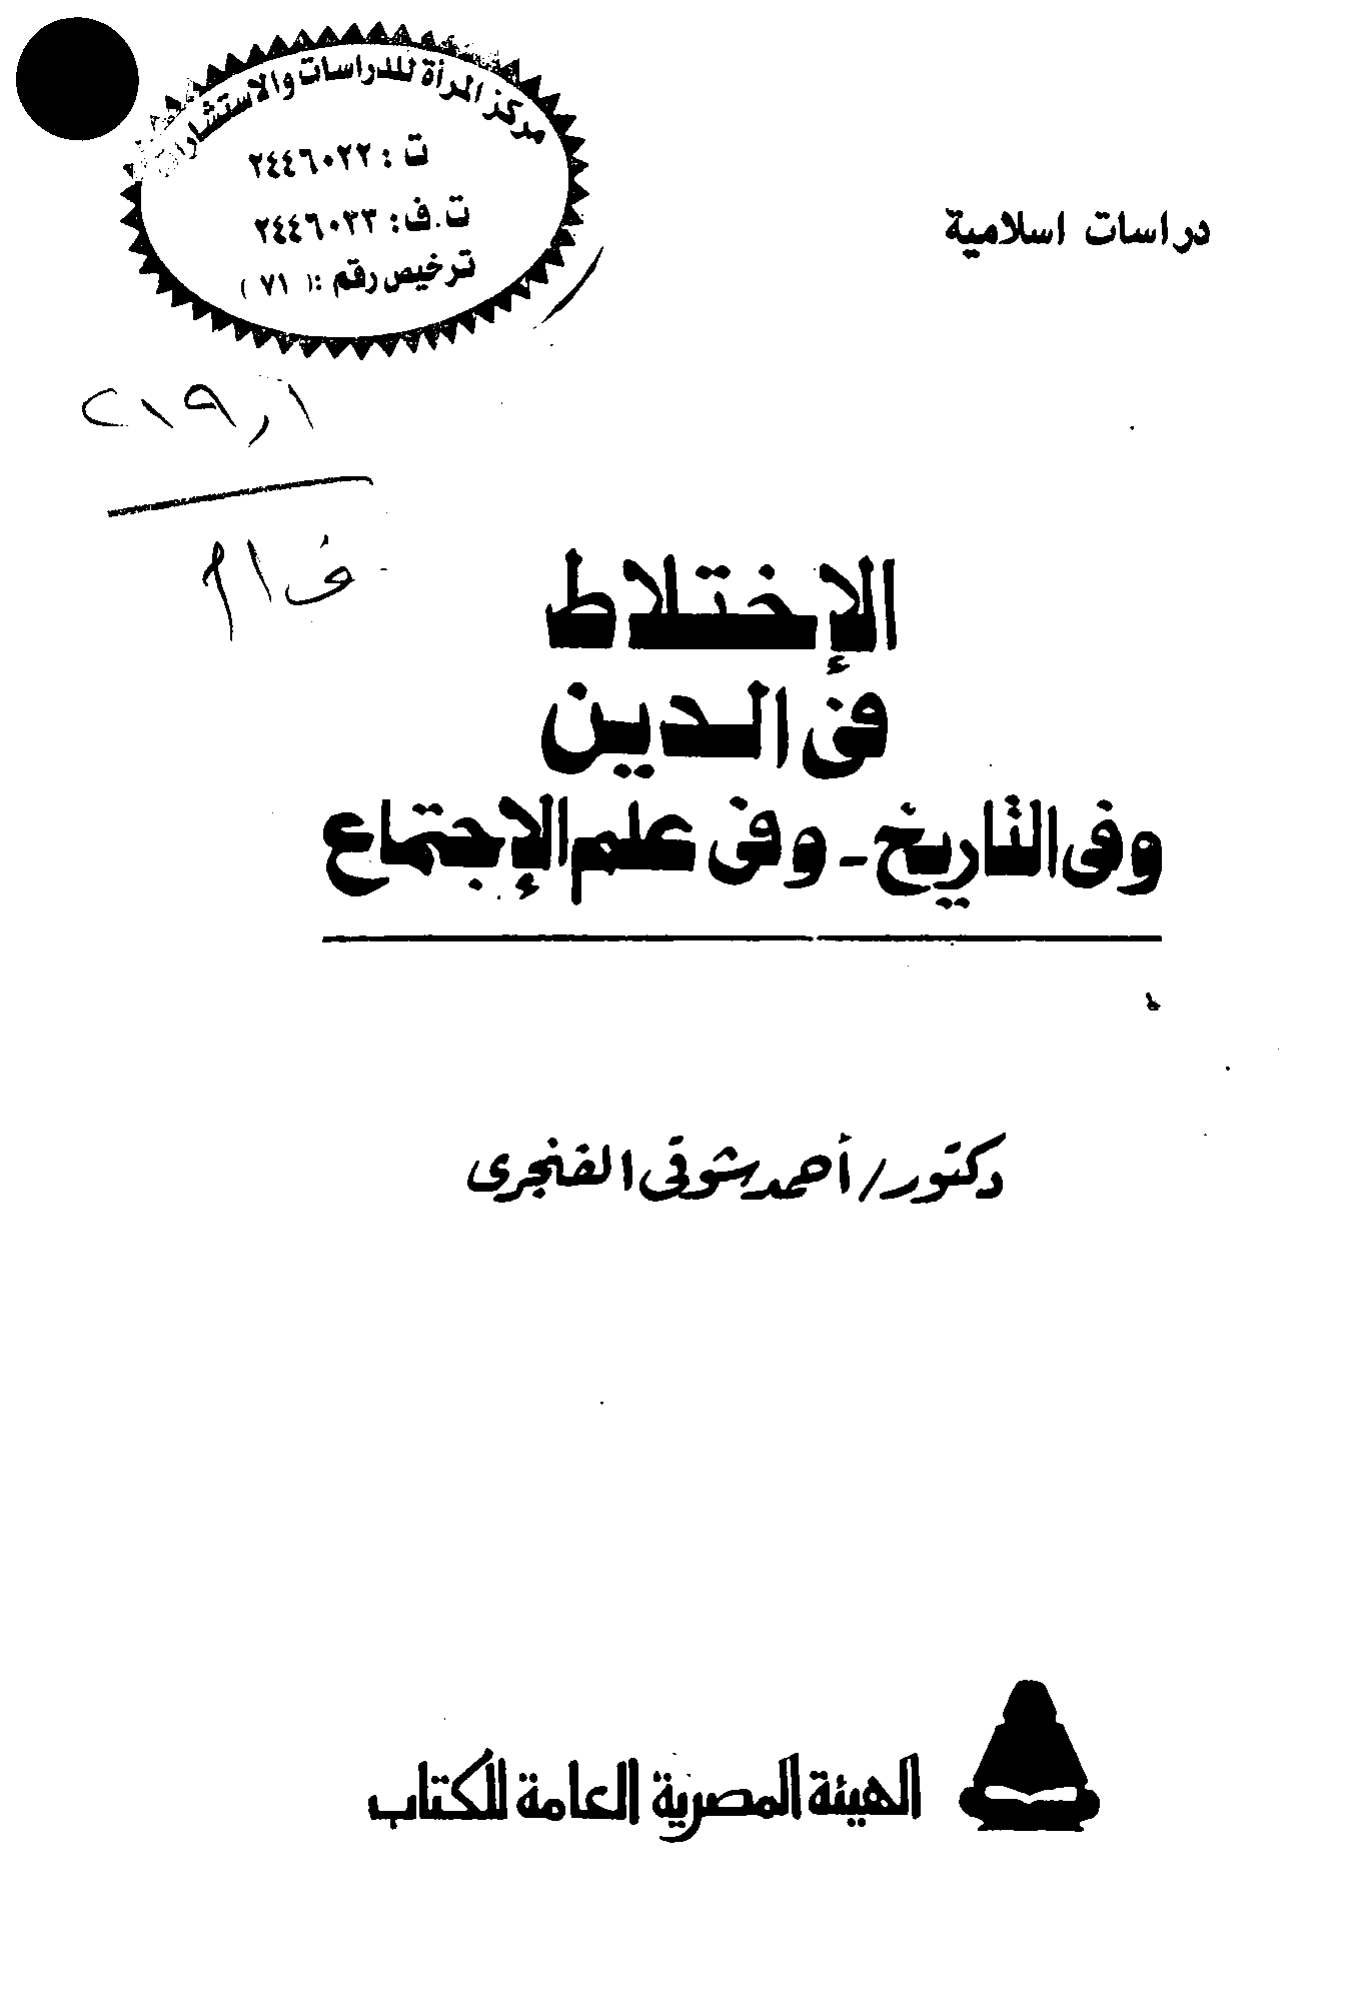 مركز المرأة للدراسات والاستشارات
ت : ٢٤٤٦٠٢٢
ت.ف: ٢٤٤٦٠٣٣
ترخيص رقم :( ٧١ )
دراسات اسلامية
٢١٩٫١
الإختلاط
فى الدين
وفى التاريخ - وفى علم الإجتماع
دكتور/أحمد شوقى الفنجرى
الهيئة المصرية العامة للكتاب